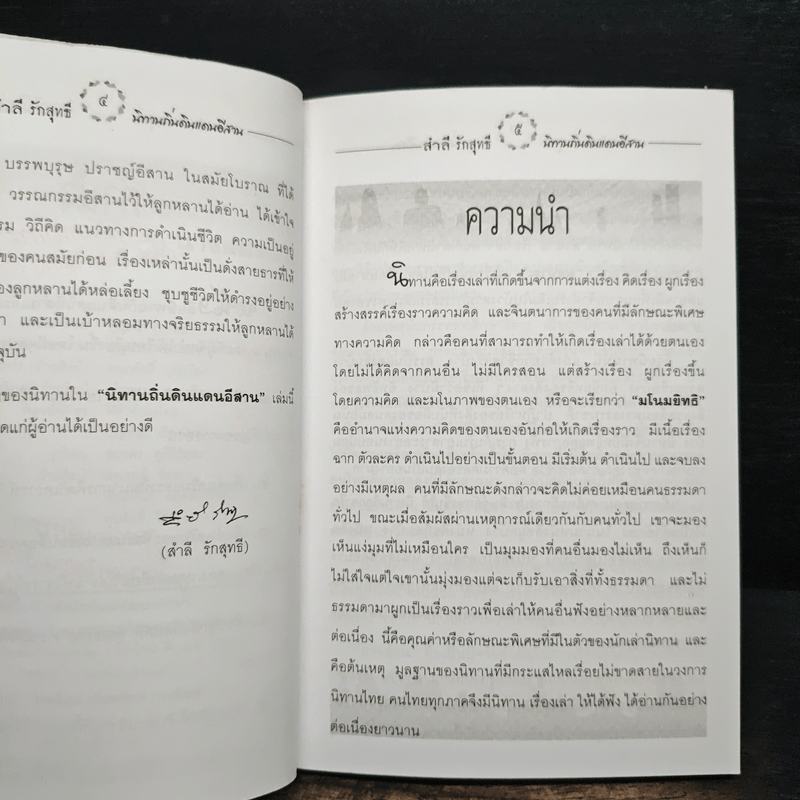 สำลี รักสุทธี ๔ นิทานถิ่นดินแดนอีสาน
บรรพบุรุษ ปราชญ์อีสาน ในสมัยโบราณ ที่ได้
วรรณกรรมอีสานไว้ให้ลูกหลานได้อ่าน ได้เข้าใจ
วิถีคิด แนวทางการดำเนินชีวิต ความเป็นอยู่
ของคนสมัยก่อน เรื่องเหล่านั้นเป็นดั่งสายธารที่ให้
องลูกหลานได้หล่อเลี้ยง ชุบชูชีวิตให้ดำรงอยู่อย่าง
และเป็นเบ้าหลอมทางจริยธรรมให้ลูกหลานได้
จุบัน
ของนิทานใน “นิทานถิ่นดินแดนอีสาน” เล่มนี้
ดแก่ผู้อ่านได้เป็นอย่างดี
(สำลี รักสุทธี)
สำลี รักสุทธี ๕ นิทานถิ่นดินแดนอีสาน
ความนำ
นิทานคือเรื่องเล่าที่เกิดขึ้นจากการแต่งเรื่อง คิดเรื่อง ผูกเรื่อง
สร้างสรรค์เรื่องราวความคิด และจินตนาการของคนที่มีลักษณะพิเศษ
ทางความคิด กล่าวคือคนที่สามารถทำให้เกิดเรื่องเล่าได้ด้วยตนเอง
โดยไม่ได้คิดจากคนอื่น ไม่มีใครสอน แต่สร้างเรื่อง ผูกเรื่องขึ้น
โดยความคิด และมโนภาพของตนเอง หรือจะเรียกว่า “มโนมยิทธิ”
คืออำนาจแห่งความคิดของตนเองอันก่อให้เกิดเรื่องราว มีเนื้อเรื่อง
ฉาก ตัวละคร ดำเนินไปอย่างเป็นขั้นตอน มีเริ่มต้น ดำเนินไป และจบลง
อย่างมีเหตุผล คนที่มีลักษณะดังกล่าวจะคิดไม่ค่อยเหมือนคนธรรมดา
ทั่วไป ขณะเมื่อสัมผัสผ่านเหตุการณ์เดียวกันกับคนทั่วไป เขาจะมอง
เห็นแง่มุมที่ไม่เหมือนใคร เป็นมุมมองที่คนอื่นมองไม่เห็น ถึงเห็นก็
ไม่ใส่ใจแต่ใจเขานั้นมุ่งมองแต่จะเก็บรับเอาสิ่งที่ทั้งธรรมดา และไม่
ธรรมดามาผูกเป็นเรื่องราวเพื่อเล่าให้คนอื่นฟังอย่างหลากหลายและ
ต่อเนื่อง นี้คือคุณค่าหรือลักษณะพิเศษที่มีในตัวของนักเล่านิทาน และ
คือต้นเหตุ มูลฐานของนิทานที่มีกระแสไหลเรื่อยไม่ขาดสายในวงการ
นิทานไทย คนไทยทุกภาคจึงมีนิทาน เรื่องเล่า ให้ได้ฟัง ได้อ่านกันอย่าง
ต่อเนื่องยาวนาน